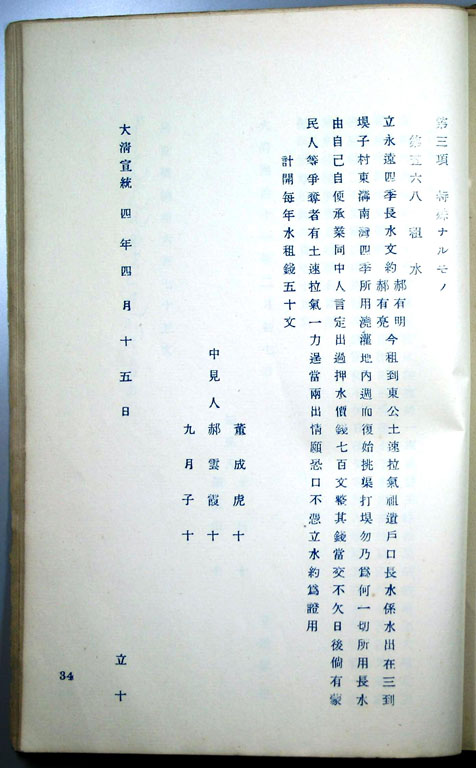 第三項　特殊ナルモノ
第五六八　租水
立永遠四季長水文約郝有明郝有亮今租到東公土速拉氣祖遺戶口長水係水出在三到
埧子村東溝南灣四季所用澆灌地內週而復始挑渠打埧勿乃爲何一切所用長水
由自己自便承業同中人言定出過押水價錢七百文整其錢當交不欠日後倘有蒙
民人等爭奪者有土速拉氣一力逞當兩出情願恐口不憑立水約爲證用
計開每年水租錢五十文
董成虎十
中見人郝雲霞十
九月子十
大淸宣統四年四月十五日　立十
34